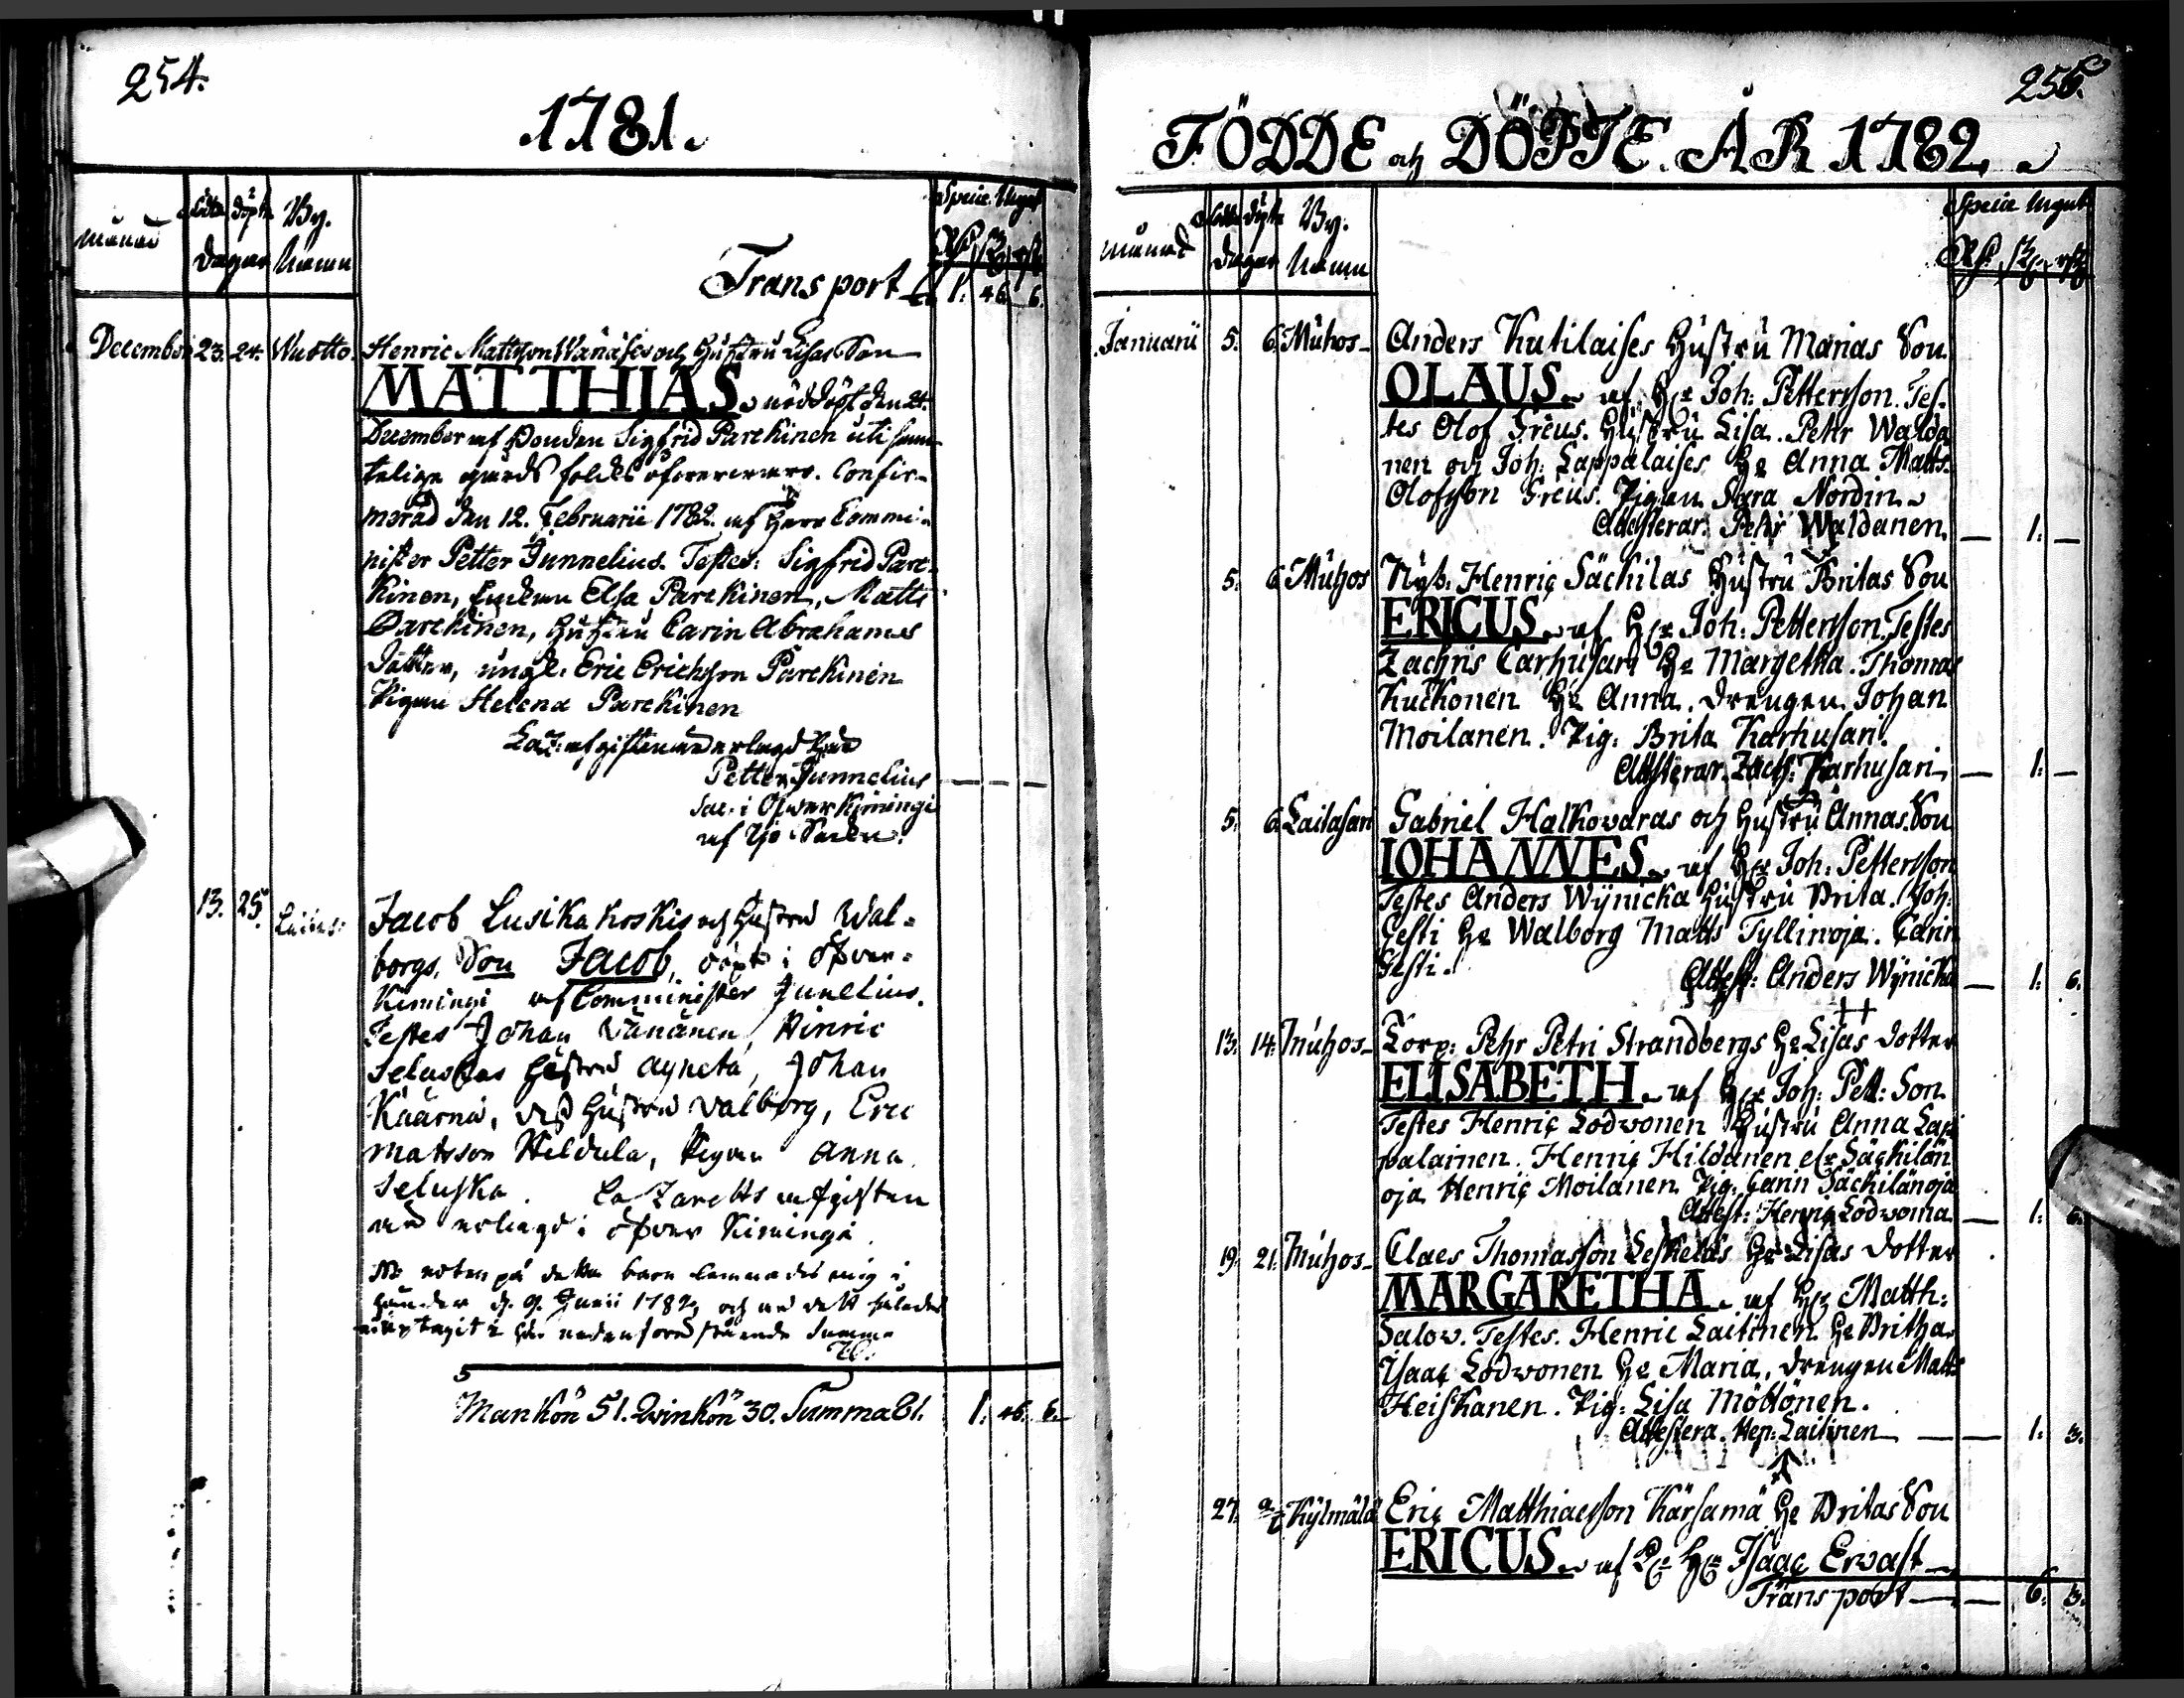 254.
1781.
månad
födde döpte By.
Dagar Namn
Specie Utgift
Transport 1: 46. 6.
December 23. 24. Wuotto. Henric Mattsson Wänäses och Hustru Lisas Son
MATTHIAS nöddöpt den 24.
December af Bonden Sigfrid Parckinen uti sam-
telige gårds folcks öfvervaro. Confir-
merad den 12. Februarii 1782. af Herr Commi-
nister Petter Junnelius. Testes: Sigfrid Parc-
kinen, Enckan Elsa Parckinen, Matts
Parckinen, Hustru Carin Abrahams
Dotter, yngl. Eric Erichsson Parckinen
Pigan Helena Parckinen
Laz: afgiften är erlagd
Petter Junnelius
Sac. i Öfwer Kiminge
af Ijo Socken.
13. 25. Jacob Lusikahoskis och Hustru Wal-
borgs, Son Jacob, döpt i Öfver-
Kimingi af Comminister Junelius.
Testes Johan Wänänen, Hinric
Seluskas Hustru Agneta, Johan
Käärnä, dess Hustru Valborg, Eric
Matsson Heldula, Pigan Anna
Seluska. Lazaretts afgiften
är erlagd i Öfver Kiminge.
NB noten på detta barn lemnades mig i
händer d. 9. Junii 1782, och är det således
ei uptagit i här nedanföre stående Summa
Mankön 51. Qvinkön 30. Summa 81. 1. 46. 6.
255.
FÖDDE och DÖPTE ÅR 1782.
månad
födde döpte By.
Dagar Namn
Specie Utgift
Januarii 5. 6. Muhos Anders Kutilaises Hustru Marias Son
OLAUS af Hr Joh: Pettersson. Tes-
tes Olof Greus. Hustru Lisa. Petr Walda
nen och Joh: Lappalaises Hu Anna Matts.
Olofsson Greus. Pigan Sara Nordin.
Attesterar. Pehr Waldanen. — 1. —
5. 6. Muhos Nyb. Henric Sächilas Hustru Britas Son
ERICUS af Hr Joh: Pettersson. Testes
Zachris Carhusari Hu Margetha. Thomas
Kuckonen Hu Anna. drengen Johan
Moilanen. Pig: Brita Karhusari.
Attesterar. Zach: Karhusari — 1. —
5. 6. Laitasari Gabriel Halkovaras och Hustru Annas. Son
IOHANNES af Hr Joh: Pettersson
Testes Anders Wÿnicka Hustru Brita. Joh:
Gesti Hu Walborg Matts Tyllinoja. Carin
Gesti. Attest: Anders Wÿnicka — 1. 6.
13. 14. Muhos Corp: Pehr Petri Strandbergs Hu Lisas dotter
ELISABETH af Hr Joh: Pett: Son.
Testes Henric Lodwonen Hustru Anna Lap
palainen. Henric Hildanen elr Säckilän
oja Henric Moilanen Pig: Carin Sächilänoja
Attest: Henric Lodwoma — 1. 6.
19. 21. Muhos Claes Thomasson Leskeläs Hu Lisas dotter
MARGARETHA af Hr Matth:
Salow. Testes. Henric Laitinen Hu Britha.
Isaac Lodwonen Hu Maria. drengen Matts
Heiskanen. Pig: Lisa Möttönen.
Attestera. Hen: Laitinen — 1. 3.
27. Kylmälä Eric Matthiaesson Kärsämä Hu Britas Son
ERICUS af Hr Isaac Ervast
Transport — 6. 3.